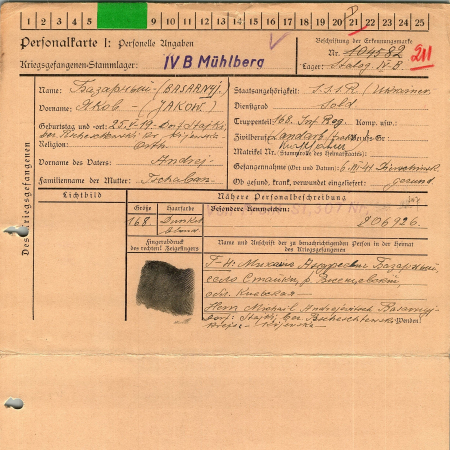 1 2 3 4 5 8 9 10 11 12 13 14 15 16 17 18 19 20 21 22 23 24 25
Personalkarte I: Personelle Angaben
Beschriftung der Erkennungsmarke
Nr. 104582
211
Kriegsgefangenen-Stammlager: IV B Mühlberg
Lager: Stalag IV-B.
Des Kriegsgefangenen
Name: Базарный (BASARNYJ.)
Vorname: Яков - (JAKOW.)
Geburtstag und -ort: 25.V-19.
Religion: Orth.
Vorname des Vaters: Andrej
Familienname der Mutter: Tschaban
Staatsangehörigkeit: S.S.S.R. (Ukrainer
Dienstgrad: Sold.
Truppenteil: 168. Inf. Reg. Komp. usw.:
Zivilberuf: Berufs-Gr.:
Matrikel Nr. (Stammrolle des Heimatstaates):
Gefangennahme (Ort und Datum): 6.
Ob gesund, krank, verwundet eingeliefert: gesund.
Lichtbild
Nähere Personalbeschreibung
Größe
Haarfarbe
Besondere Kennzeichen:
168.
Dunkel
blond
806926.
Fingerabdruck
des rechten! Zeigefingers
Name und Anschrift der zu benachrichtigenden Person in der Heimat
des Kriegsgefangenen
Михаил Андреевич Базарный,
село Стайки, р.
обл. Киевская
Herr Michail Andrejewitsch Basarnyj
Dorf: Stajki,
Wenden!